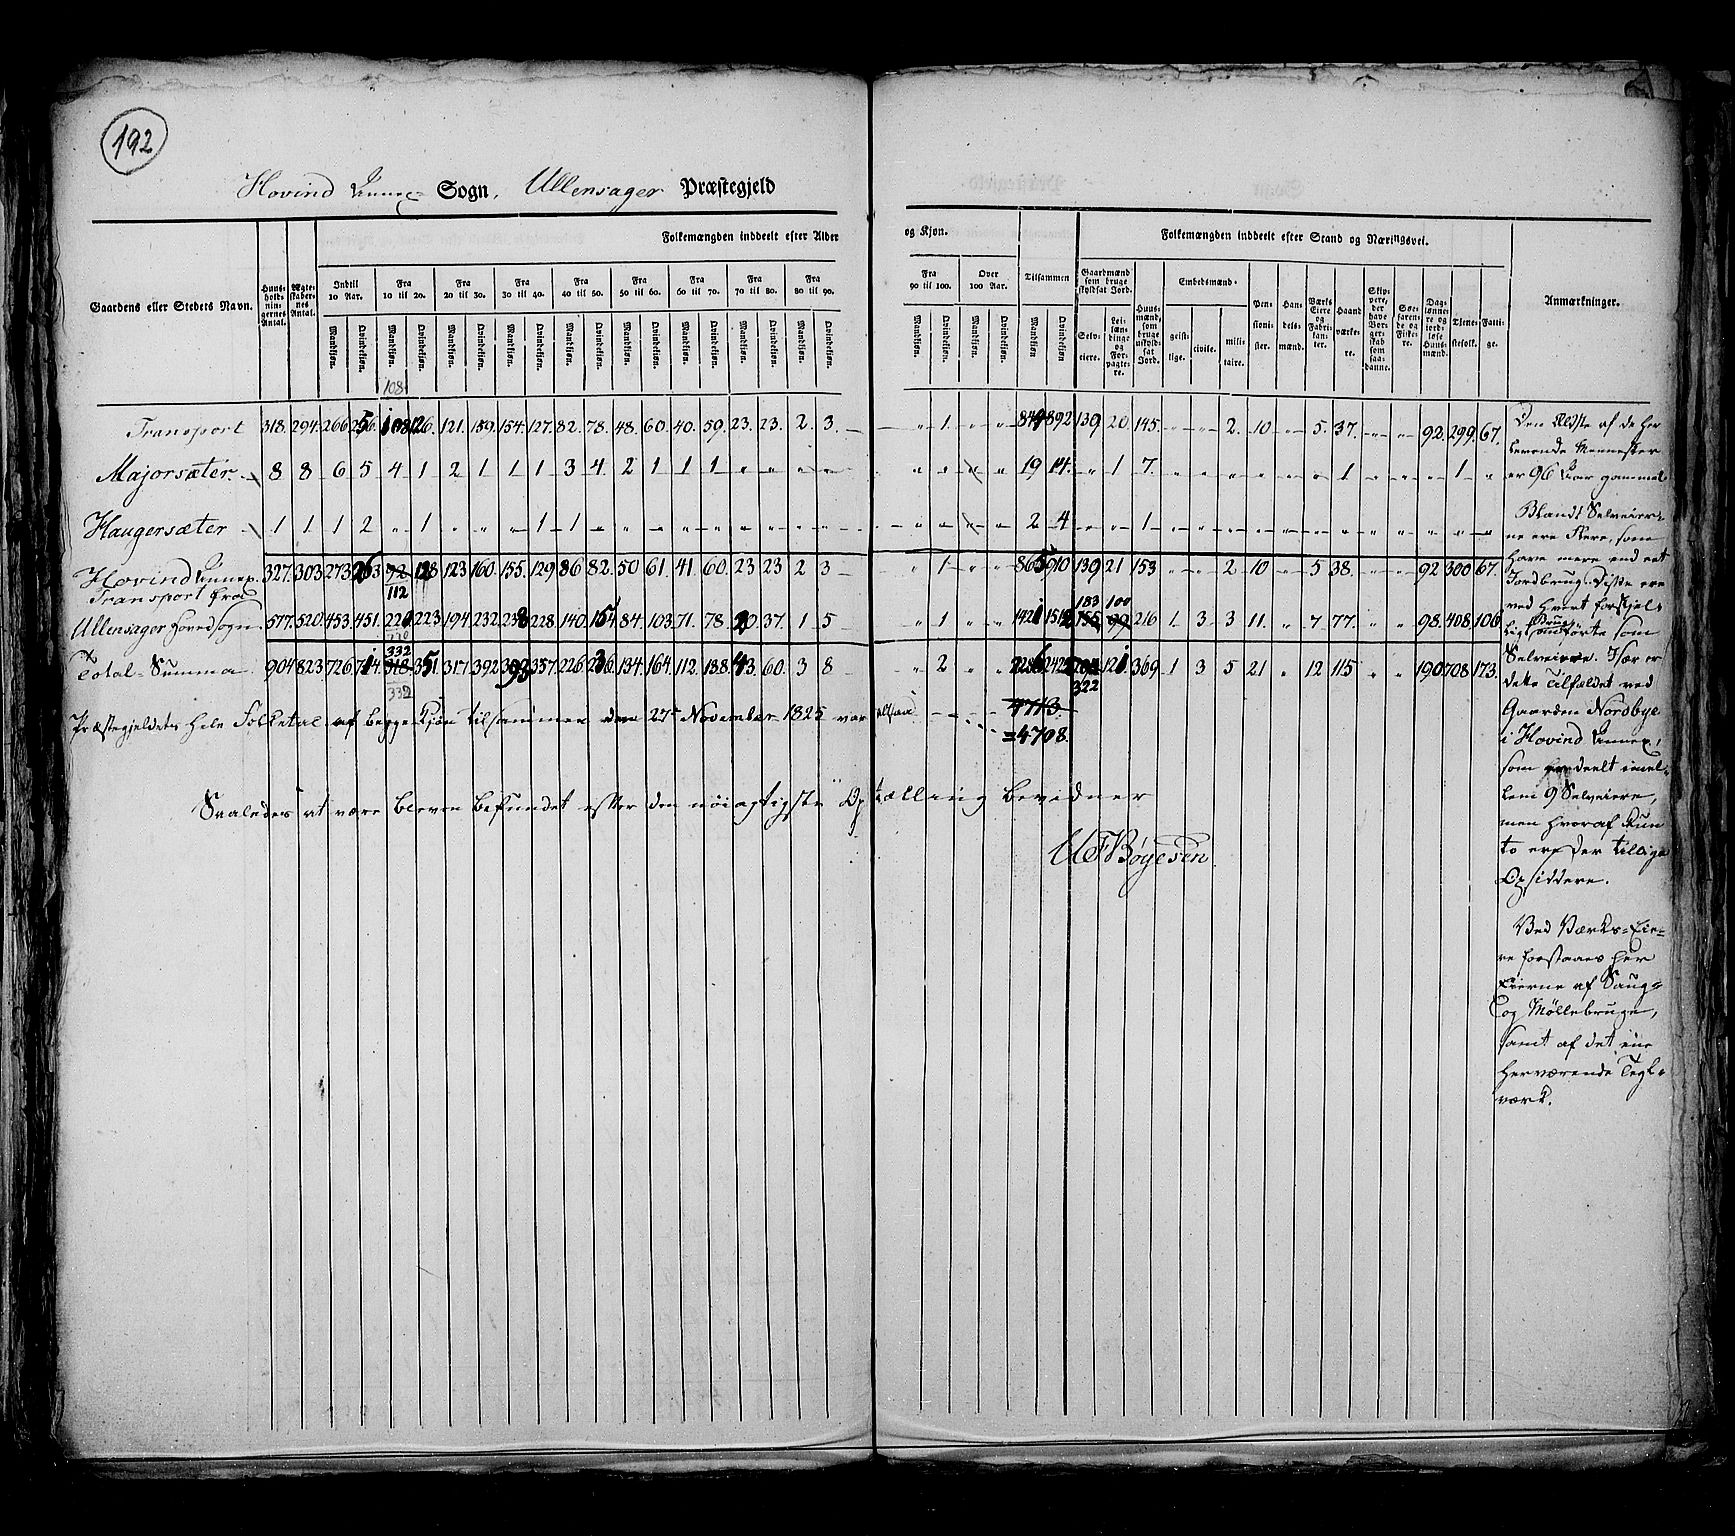 192
Hovind Annex- Sogn, Ullensager Præstegjeld
Folkemængden inddeelt efter Alder og Kjøn.
Folkemængden inddeelt efter Stand og Næringsvei.
Gaardens eller Stedets Navn. Huusholdningernes Antal. Ægteskabernes Antal. Indtil 10 Aar. Fra 10 til 20. Fra 20 til 30. Fra 30 til 40. Fra 40 til 50. Fra 50 til 60. Fra 60 til 70. Fra 70 til 80. Fra 80 til 90. Fra 90 til 100. Over 100 Aar. Tilsammen
Mandkjøn. Qvindekjøn.
Gaardmænd som bruge skyldsat Jord. Selveiere. Leilændinge og Forpagtere. Huusmænd, som bruge uskyldsat Jord. Embedsmænd. geistlige. civile. militaire. Pensionister. Handelsmænd. Værks Eiere og Fabrikanter. Haandværkere. Skippere, der have Borgerskab som saadanne. Søefarende og Fiskere. Daglønnere og jordløse Huusmænd. Tjenestefolk. Fattige. Anmærkninger.
108
Transport 318. 294. 266. 256. 108 126. 121. 159. 154. 127. 82. 78. 48. 60. 40. 59. 23. 23. 2. 3. – „ 1. „ „ 892 139 20. 145. „ „ 2. 10 „ 5. 37. „ „ 92. 299. 67.
Majorsæter. 8 8 6 5 4 1 2 1 1 1 3 4. 2 1 1 1 „ „ „ „ 19 14. „ 1 7. „ „ „ „ „ „ 1 „ „ „ 1 „
Haugersæter 1 1 1 2 „ 1 „ „ „ 1 1 „ „ „ „ „ „ „ „ „ 2 4 „ „ 1 „ „ „ „ „ „ „ „ „ „ „ „
Hovind Annex. 327. 303 273 263 92 112 128 123 160. 155. 129 86 82. 50 61. 41 60. 23 23 2 3 – „ 1 „ „ 865 910 139 21 153 „ „ 2 10 „ 5 38. „ „ 92 300 67.
Transport fra
183 100
Ullensager Hovedsogn 577. 520. 453. 451. 220 223 194 232. 238 228 140. 154 84. 103. 71. 78. 20 37. 1 5 „ 1 „ „ 1421 1512 155 99 216 1 3 3 11. „ 7 77. „ „ 98. 408 106.
332
Total-Summa 904 823 726. 714. 318 351 317. 392 393 357. 226 236. 134 164 112. 138. 43. 60. 3 8 „ 2 „ „ 121 369 1 3 5 21 „ 12 115 „ „ 190 708 173.
332 322
Præstegjeldets hele Folketal af begge Kjøn tilsammen den 27de November 1825 var altsaa 4713.
=4708.
Saaledes at være bleven befundet efter den nøiagtigste Optælling bevidner
U F Bøyesen.
Den Ældste af de her
levende Mennesker
er 96 Aar gammel
Blandt Selveier-
ne ere Flere, som
have mere end eet
Jordbrug. Disse ere
ved hvert forskjel-
ligt Brug anførte som
Selveiere. Især er
dette Tilfældet ved
Gaarden Nordbye
i Hovind Annex,
som er deelt imel-
lem 9 Selveiere,
men hvoraf kun
to ere der tillige
Opsiddere.
Ved Værks-Eie-
re forstaaes her
Eierne af Saug-
og Møllebruge,
samt af det ene
herværende Tegl-
værk.